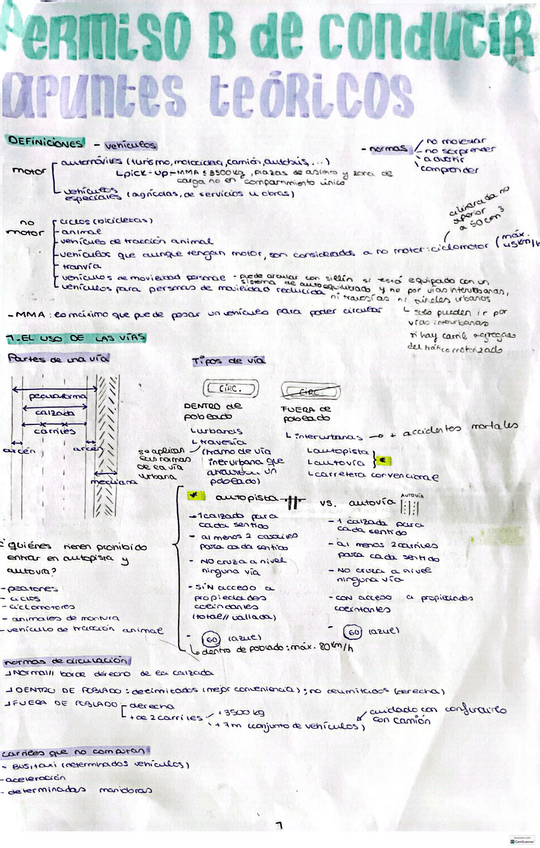 PERMISO B de CONDUCIR
apuntes teóricos
DEFINICIONES - vehículos
- normas
no molestar
no sorprender
advertir
comprender
motor
automóviles (turismo, motocicleta, camión, autobús, ...)
pick-up-MMA ≤ 3500kg, plazas de asiento y zona de
carga no en compartimento único
vehículos
especiales (agrícolas, de servicios u obras)
no
motor
ciclos (bicicletas)
animal
vehículo de tracción animal
vehículos que aunque tengan motor, son considerados a no motor: ciclomotor (máx.
45km/h
cilindrada no
superior
a 50cm³
tranvía
vehículos de movilidad personal - puede circular con sillín si está equipado con un
sistema de autoequilibrado y no por vías interurbanas,
ni travesías ni túneles urbanos
vehículos para personas de movilidad reducida
solo pueden ir por
vías interurbanas
si hay carril
del tráfico motorizado
- MMA: lo máximo que puede pesar un vehículo para poder circular
1. EL USO DE LAS VÍAS
Partes de una vía
plataforma
calzada
carriles
arcén
arcén
mediana
Tipos de vía
CIRC.
CIRC.
DENTRO de
poblado
urbanas
travesía
(tramo de vía
interurbana que
atraviesa un
poblado)
se aplican
las normas
de la vía
urbana
FUERA de
poblado
interurbanas → + accidentes mortales
autopista
autovía
carretera convencional
* autopista
- 1 calzada para
cada sentido
- al menos 2 carriles
para cada sentido
- NO cruza a nivel
ninguna vía
- SIN acceso a
propiedades
colindantes
(total// vallada)
- 60 (azul)
dentro de poblado: máx. 80km/h
vs. autovía
AUTOVÍA
- 1 calzada para
cada sentido
- al menos 2 carriles
para cada sentido
- NO cruza a nivel
ninguna vía
- CON acceso a propiedades
colindantes
- 60 (azul)
¿Quiénes tienen prohibido
entrar en autopista y
autovía?
- peatones
- ciclos
- ciclomotores
- animales de montura
- vehículo de tracción animal
normas de circulación
Normal// borde derecho de la calzada
DENTRO DE POBLADO: delimitados (mejor conveniencia); no delimitados (derecha)
FUERA DE POBLADO
derecha
+ de 2 carriles
+3500kg
+ 7m (conjunto de vehículos)
cuidado con confundirlo
con camión
carriles que no computan
- BUS/taxi (determinados vehículos)
- aceleración
- determinadas maniobras
1
CamScanner